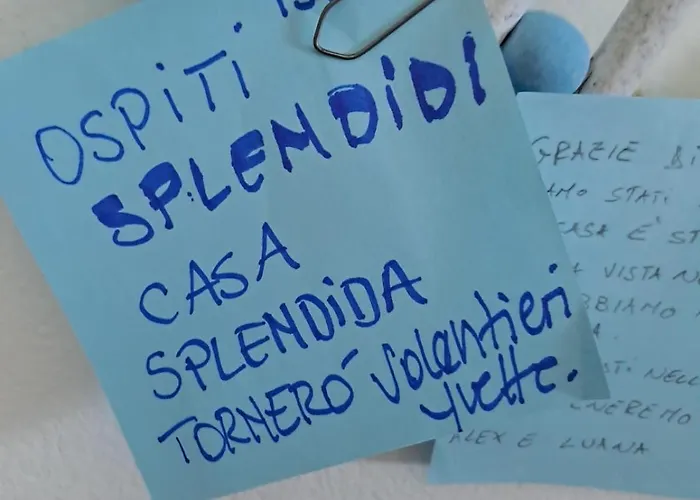 OSPITI
SPLENDIDI
CASA
SPLENDIDA
TORNERÓ volentieri
yvette.
GRAZIE
AMO STATI
CASA È
VISTA
BBIAMO
NELL
ENEREMO
ALEX E LUANA